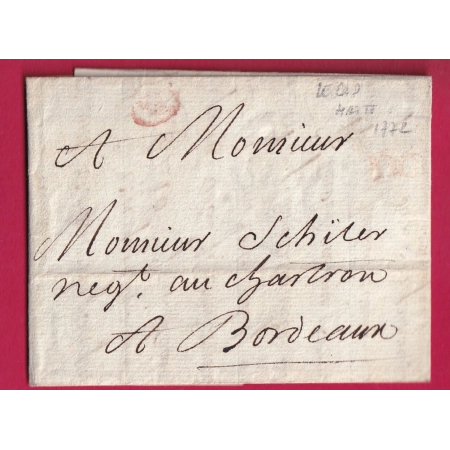 1772
A Monsieur
Monsieur Schÿler
negt. au chartron
A Bordeaux